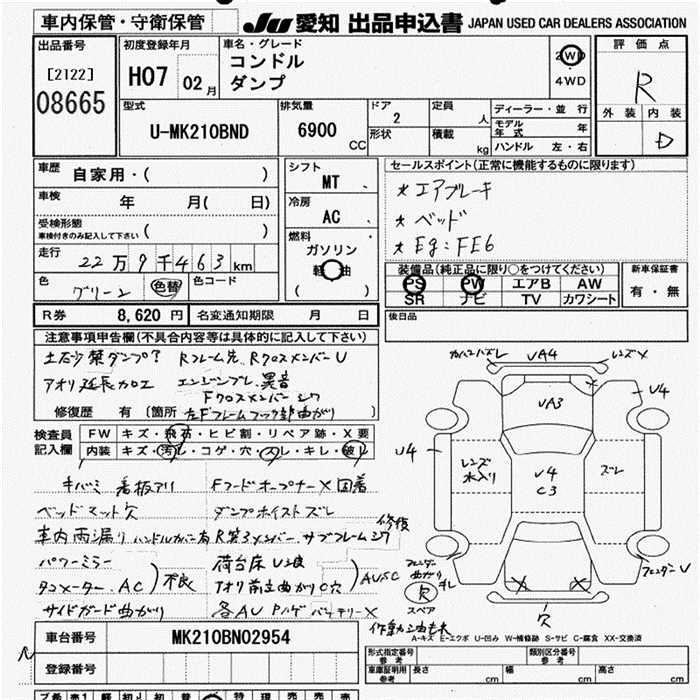 車内保管・守衛保管
JU 愛知 出品申込書 JAPAN USED CAR DEALERS ASSOCIATION
出品番号
[2122]
08665
初度登録年月
H07 02月
車名・グレード
コンドル
ダンプ
2WD
4WD
評価点
R
外装 内装
D
型式
U-MK210BND
排気量
6900 CC
ドア
2
形状
定員
人
積載
kg
ディーラー・並行
モデル年式 年
ハンドル 左・右
車歴
自家用・( )
車検
年 月( 日)
受検形態
車検付きのみ記入して下さい ( )
走行
22万9千463km
色
グリーン 色替
色コード
シフト
MT
冷房
AC
燃料
ガソリン
軽油
( )
セールスポイント(正常に機能するものに限ります)
* エアブレーキ
* ベッド
* Eg:FE6
装備品(純正品に限り○をつけてください)
PS PW エアB AW
SR ナビ TV カワシート
新車保証書
有・無
R券 8,620円 名変通知期限 月 日
後日品
注意事項申告欄(不具合内容等は具体的に記入して下さい)
土砂禁ダンプ? Rフレーム先、RクロスメンバーU
アオリ延長加工 エンジンブレ、異音
Fクロスメンバーシワ
修復歴 有 [箇所 左Fフレームフック部曲がり
検査員記入欄
FW キズ・飛石・ヒビ割・リペア跡・X要
内装 キズ・汚れ・コゲ・穴・スレ・キレ・破レ
キバミ 看板アリ Fフードオープナー×固着
ベッドマット穴 ダンプホイストズレ
車内雨漏り ハンドルカバー有 R第3メンバー、サブフレームシワ 修復
パワーミラー
タコメーター、AC)不良
荷台床U波
アオリ前立曲がりC穴)AUSC
サイドガード曲がり 各AU Pハゲ バッテリー×
カバーハズレ VA4 レンズ×
U4
VA3
U4
レンズ水入り
V4
C3
ズレ
フェンダー曲がりキレ
R
スペア
作動油モレ
フェンダーU
穴
A-キズ E-エクボ U-凹み W-補修跡 S-サビ C-腐食 XX-交換済
車台番号 MK210BN02954
登録番号
形式指定番号
参考
類別区分番号
参考
車庫証明用
参考
長さ cm 幅 cm 高さ cm